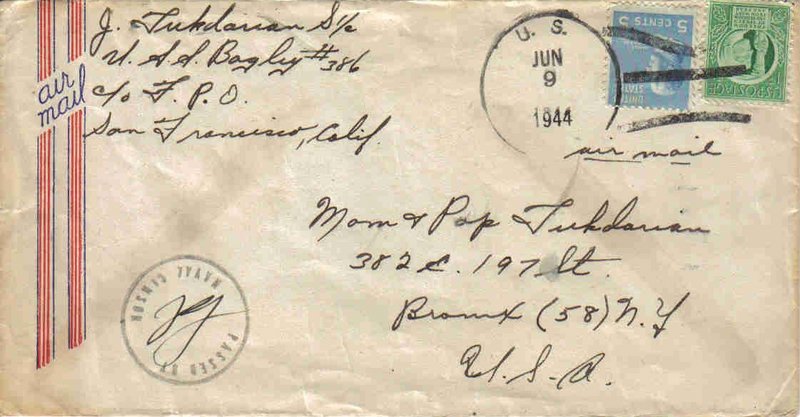 J. Tukdarian S1/c
U.S.S. Bagley #386
c/o F.P.O.
San Francisco, Calif.
air
mail
U. S.
JUN
9
1944
5 CENTS 5
UNITED
STATES
air mail
Mom & Pop Tukdarian
382 E. 197 St.
Bronx (58) N.Y
U.S.A.
PASSED BY
NAVAL CENSOR